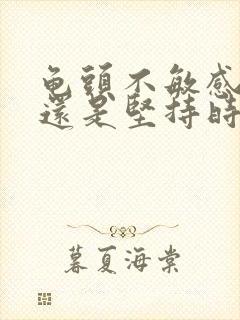 龟頭不敏感
還是堅持時
暮夏海棠